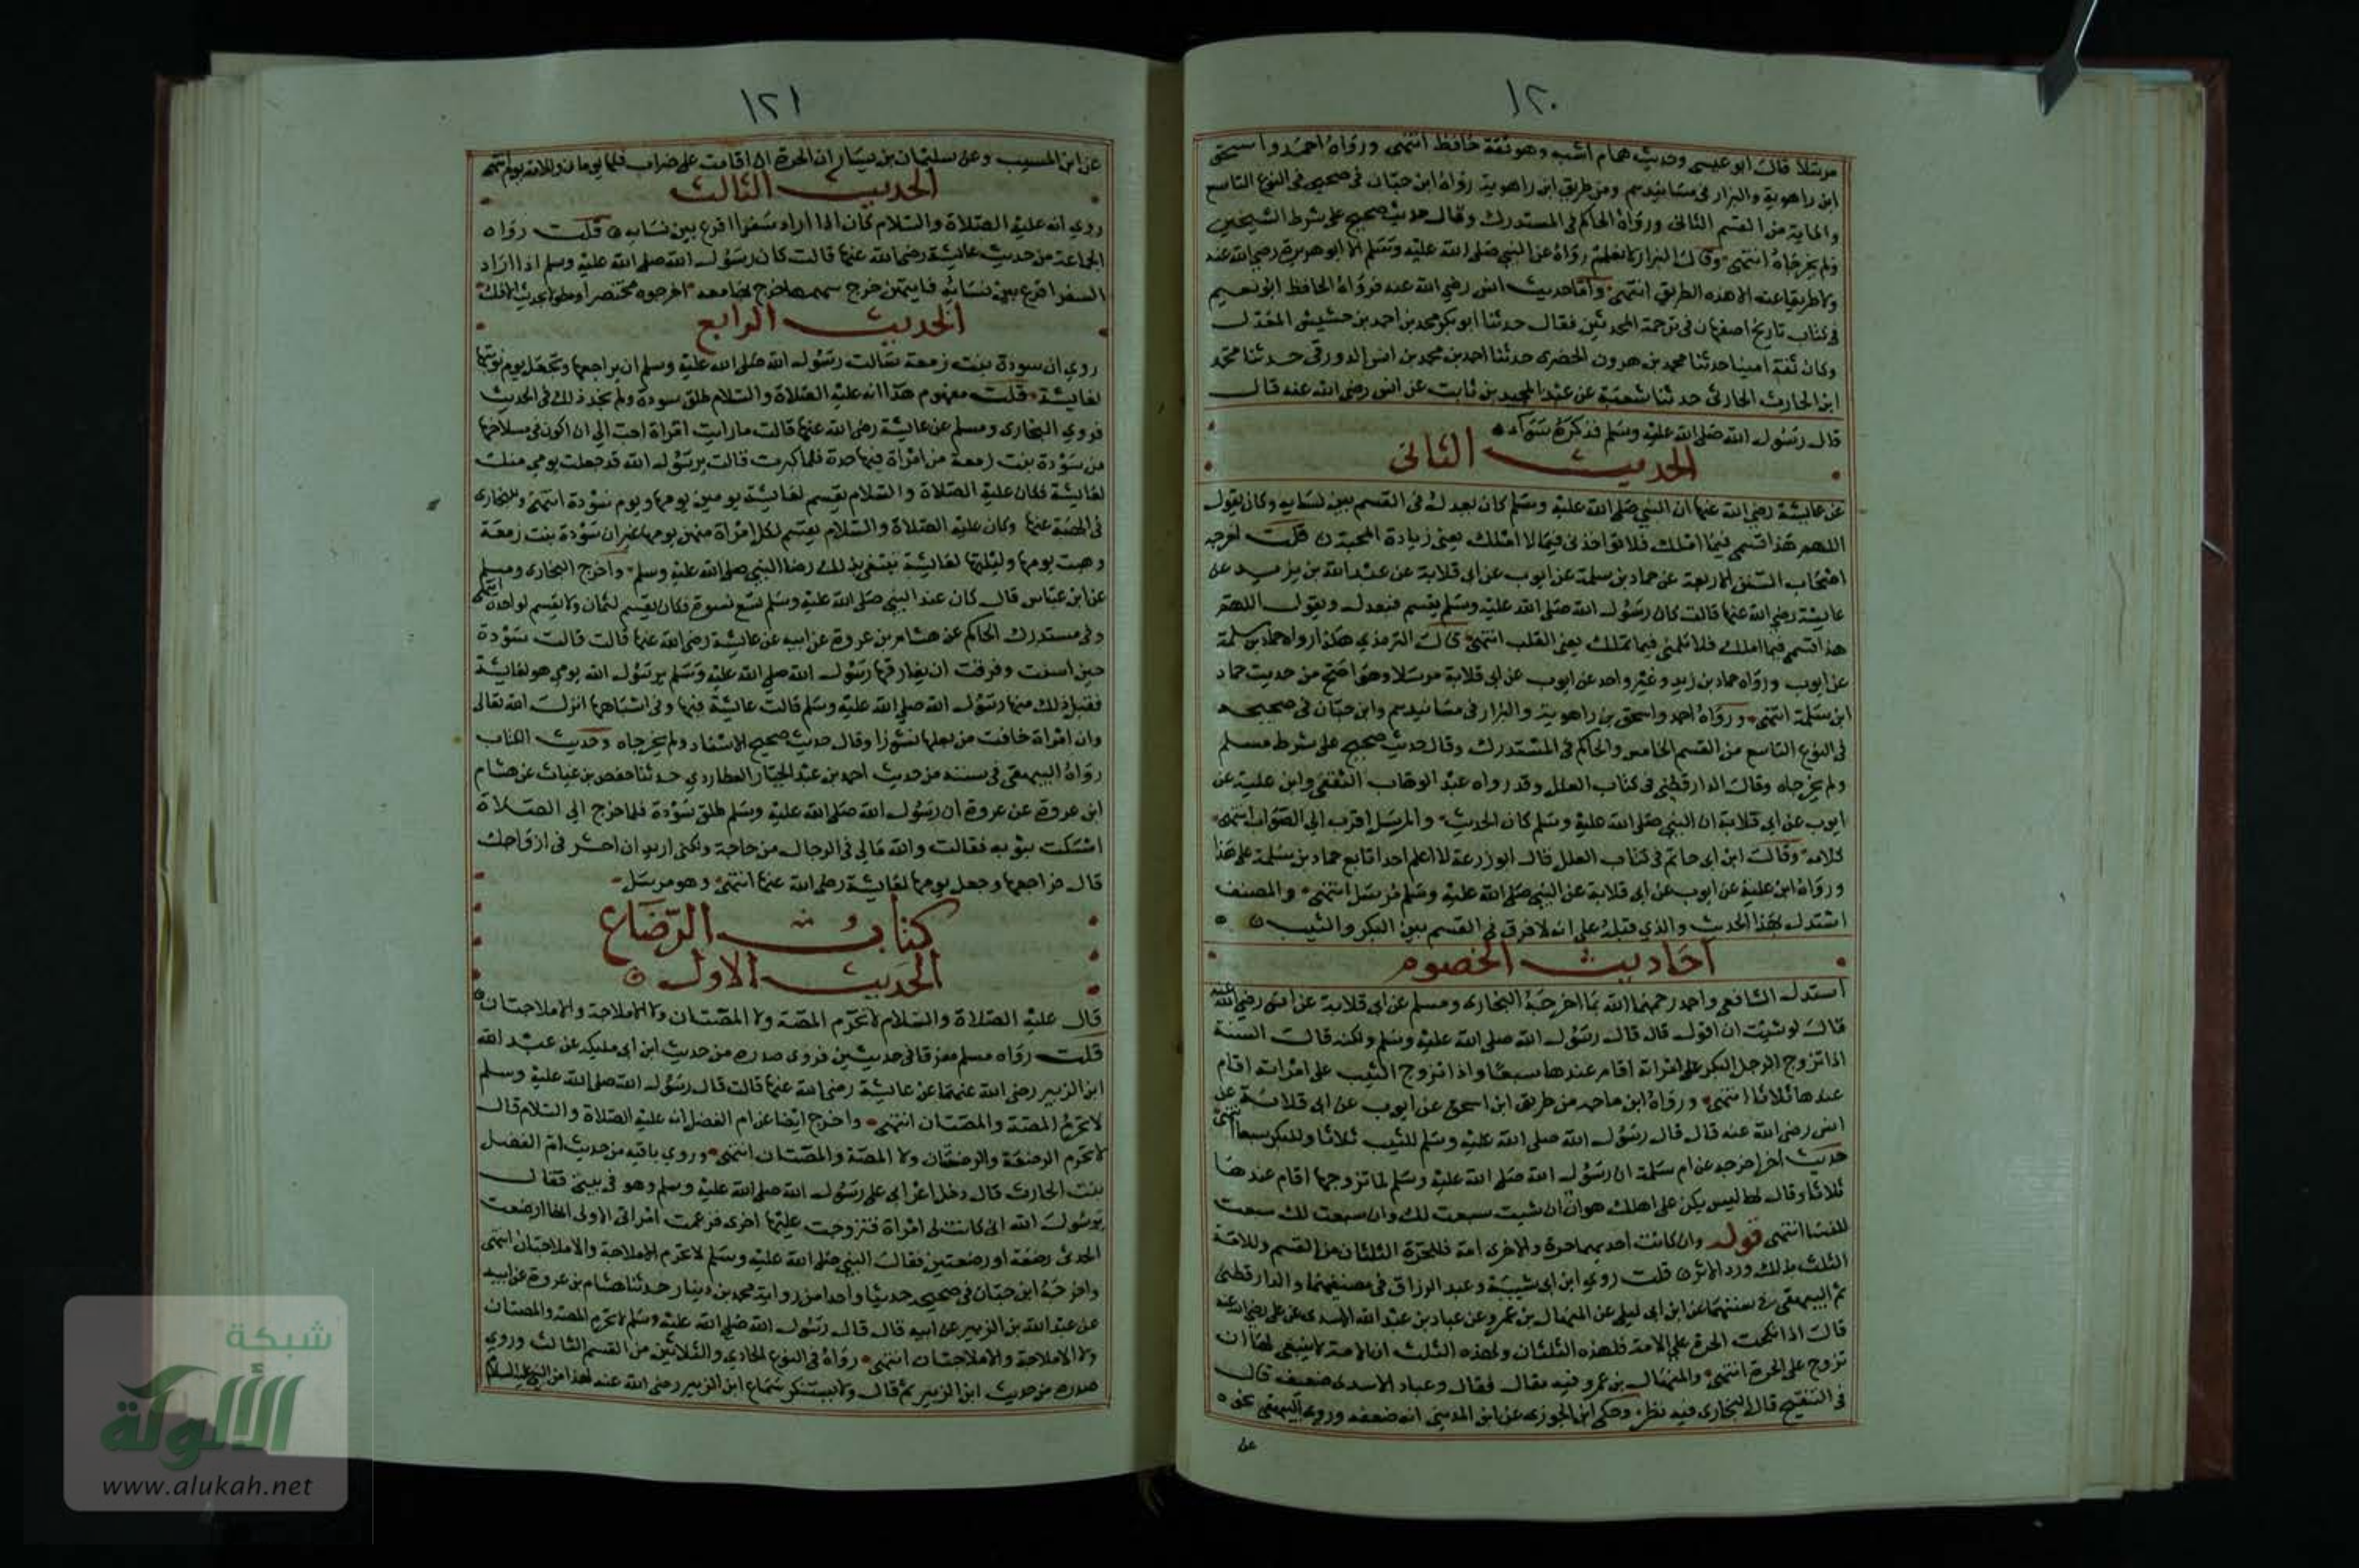 ١٢٠
مرسلا قال ابو عيسى وحديث همام اشبه وهو ثقة حافظ انتهى ورواه احمد واسحق
ابن راهوية والبزار فى مسانيدهم ومن طريق ابن راهوية رواه ابن حبان فى صحيحه فى النوع التاسع
والماية من القسم الثانى ورواه الحاكم فى المستدرك وقال حديث صحيح على شرط الشيخين
ولم يخرجاه انتهى وقال البزار لا نعلم رواه عن النبي صلى الله عليه وسلم الا ابو هريرة رضي الله عنه
ولا طريقا عنه الا هذه الطريق انتهى واما حديث انس رضي الله عنه فرواه الحافظ ابو نعيم
فى كتاب تاريخ اصفهان فى ترجمة المحدثين فقال حدثنا ابو بكر محمد بن احمد بن حشيش المعدل
وكان ثقة امينا حدثنا محمد بن هرون الحضرى حدثنا احمد بن محمد بن انس الدورقى حدثنا محمد
ابن الحارث الحارثى حدثنا شعبة عن عبد المجيد بن ثابت عن انس رضى الله عنه قال
قال رسول الله صلى الله عليه وسلم فذكره سواء
الحديث الثانى
عن عايشة رضي الله عنها ان النبي صلى الله عليه وسلم كان يعدل فى القسم بين نسايه وكان يقول
اللهم هذا قسمى فيما املك فلا تواخذنى فيما لا املك يعنى زيادة المحبة قلت اخرجه
اصحاب السنن الاربعة عن حماد بن سلمة عن ايوب عن ابى قلابة عن عبد الله بن يزيد عن
عايشة رضي الله عنها قالت كان رسول الله صلى الله عليه وسلم يقسم فيعدل ويقول اللهم
هذا قسمى فيما املك فلا تلمنى فيما تملك يعنى القلب انتهى قال الترمذي هكذا رواه حماد بن سلمة
عن ايوب ورواه حماد بن زيد وغير واحد عن ايوب عن ابى قلابة مرسلا وهو اصح من حديث حماد
ابن سلمة انتهى ورواه احمد واسحق بن راهوية والبزار فى مسانيدهم وابن حبان فى صحيحه
فى النوع التاسع من القسم الخامس والحاكم فى المستدرك وقال حديث صحيح على شرط مسلم
ولم يخرجاه وقال الدارقطنى فى كتاب العلل وقد رواه عبد الوهاب الثقفى وابن علية عن
ايوب عن ابى قلابة ان النبي صلى الله عليه وسلم كان الحديث والمرسل اقرب الى الصواب انتهى
كلامه وقال ابن ابى حاتم فى كتاب العلل قال ابو زرعة لا اعلم احدا تابع حماد بن سلمة على هذا
ورواه ابن علية عن ايوب عن ابى قلابة عن النبي صلى الله عليه وسلم مرسل انتهى والمصنف
استدل بهذا الحديث والذي قبله على انه لا فرق فى القسم بين البكر والثيب
احاديث الخصوم
استدل الشافعى واحمد رحمهما الله بما اخرجه البخارى ومسلم عن ابى قلابة عن انس رضي الله عنه
قال لو شيت ان اقول قال قال رسول الله صلى الله عليه وسلم ولكنه قال السنة
اذا تزوج الرجل البكر على امراته اقام عندها سبعا واذا تزوج الثيب على امراته اقام
عندها ثلاثا انتهى ورواه ابن ماجه من طريق ابن اسحق عن ايوب عن ابى قلابة عن
انس رضي الله عنه قال قال رسول الله صلى الله عليه وسلم للثيب ثلاثا وللبكر سبعا انتهى
حديث اخر اخرجه عن ام سلمة ان رسول الله صلى الله عليه وسلم لما تزوجها اقام عندها
ثلاثا وقال لها ليس بكن على اهلك هوان ان شيت سبعت لك وان سبعت لك سبعت
للنسا انتهى قوله وان كانت احديهما حرة والاخرى امة فللحرة الثلثان من القسم وللامة
الثلث بذلك ورد الاثر قلت روي ابن ابى شيبة وعبد الرزاق فى مصنفيهما والدارقطنى
ثم البيهقى فى سننهما عن ابن ابى ليلى عن المنهال بن عمرو عن عباد بن عبد الله الاسدى عن على رضي الله عنه
قال اذا نكحت الحرة على الامة فلهذه الثلثان ولهذه الثلث ان الامة لا ينبغى لها ان
تزوج على الحرة انتهى والمنهال بن عمرو فيه مقال وعباد الاسدى ضعيف قال
فى التنقيح قال البخارى فيه نظر وحكى ابن الجوزى عن ابن المدينى انه ضعفه وروى البيهقى نحوه
عن
١٢١
عن ابن المسيب وعن سليمان بن يسار ان الحرة ان اقامت على ضراير فلها يومان وللامة يوم انتهى
الحديث الثالث
روي انه عليه الصلاة والسلام كان اذا اراد سفرا اقرع بين نسايه قلت رواه
الجماعة من حديث عايشة رضى الله عنها قالت كان رسول الله صلى الله عليه وسلم اذا اراد
السفر اقرع بين نسايه فايتهن خرج سهمها خرج بها معه اخرجوه مختصرا ومطولا بحديث الافك
الحديث الرابع
روي ان سودة بنت زمعة سالت رسول الله صلى الله عليه وسلم ان يراجعها وتجعل يوم نوبتها
لعايشة قلت مفهوم هذا انه عليه الصلاة والسلام طلق سودة ولم نجد ذلك فى الحديث
فروي البخارى ومسلم عن عايشة رضى الله عنها قالت ما رايت امراة احب الى ان اكون فى مسلاخها
من سودة بنت زمعة من امراة فيها حدة فلما كبرت قالت يرسول الله قد جعلت يومي منك
لعايشة فكان عليه الصلاة والسلام يقسم لعايشة يومين يومها ويوم سودة انتهى وللبخارى
فى الهبة عنها وكان عليه الصلاة والسلام يقسم لكل امراة منهن يومها غير ان سودة بنت زمعة
وهبت يومها وليلتها لعايشة تبتغى بذلك رضا النبي صلى الله عليه وسلم واخرج البخارى ومسلم
عن ابن عباس قال كان عند النبي صلى الله عليه وسلم تسع نسوة فكان يقسم لثمان ولا يقسم لواحدة انتهى
وفى مستدرك الحاكم عن هشام بن عروة عن ابيه عن عايشة رضى الله عنها قالت قالت سودة
حين اسنت وفرقت ان يفارقها رسول الله صلى الله عليه وسلم يرسول الله يومي هو لعايشة
فقبل ذلك منها رسول الله صلى الله عليه وسلم قالت عايشة فيها وفى اشباهها انزل الله تعالى
وان امراة خافت من بعلها نشوزا وقال حديث صحيح الاسناد ولم يخرجاه وحديث الكتاب
رواه البيهقى فى سننه من حديث احمد بن عبد الجبار العطاردي حدثنا حفص بن غياث عن هشام
ابن عروة عن عروة ان رسول الله صلى الله عليه وسلم طلق سودة فلما خرج الى الصلاة
امسكت بثوبه فقالت والله مالى فى الرجال من حاجة ولكنى اريد ان احشر فى ازواجك
قال فراجعها وجعل يومها لعايشة رضى الله عنها انتهى وهو مرسل
كتاب الرضاع
الحديث الاول
قال عليه الصلاة والسلام لا تحرم المصة ولا المصتان ولا الاملاجة والاملاجتان
قلت رواه مسلم مفرقا فى حديثين فروى صدره من حديث ابن ابى مليكة عن عبد الله
ابن الزبير رضى الله عنهما عن عايشة رضى الله عنها قالت قال رسول الله صلى الله عليه وسلم
لا تحرم المصة والمصتان انتهى واخرج ايضا عن ام الفضل انه عليه الصلاة والسلام قال
لا تحرم الرضعة والرضعتان ولا المصة والمصتان انتهى وروي باقيه من حديث ام الفضل
بنت الحارث قال دخل اعرابى على رسول الله صلى الله عليه وسلم وهو فى بيتى فقال
يرسول الله انى كانت لى امراة فتزوجت عليها اخرى فزعمت امراتى الاولى انها ارضعت
الحدثى رضعة او رضعتين فقال النبي صلى الله عليه وسلم لا تحرم الاملاجة والاملاجتان انتهى
واخرجه ابن حبان فى صحيحه حديثا واحدا من رواية محمد بن دينار حدثنا هشام بن عروة عن ابيه
عن عبد الله بن الزبير عن ابيه قال قال رسول الله صلى الله عليه وسلم لا تحرم المصة والمصتان
ولا الاملاجة والاملاجتان انتهى رواه فى النوع الحادي والثلاثين من القسم الثالث وروي
صدره من حديث ابن الزبير ثم قال ولا يستنكر سماع ابن الزبير رضى الله عنه لهذا من النبي عليه السلام
شبكة
الألوكة
www.alukah.net